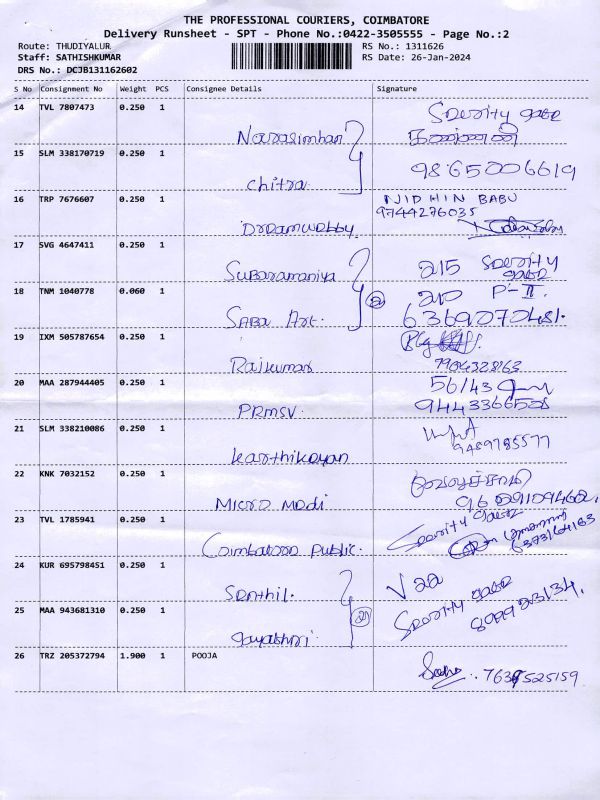 THE PROFESSIONAL COURIERS, COIMBATORE
Delivery Runsheet - SPT - Phone No.:0422-3505555 - Page No.:2
Route: THUDIYALUR RS No.: 1311626
Staff: SATHISHKUMAR RS Date: 26-Jan-2024
DRS No.: DCJB131162602
S No Consignment No Weight PCS Consignee Details Signature
14 TVL 7807473 0.250 1 Narasimhan
15 SLM 338170719 0.250 1 Chitra 9865006619
16 TRP 7676607 0.250 1 NIDHIN BABU
9744276035
17 SVG 4647411 0.250 1 Subaramaniya 215
18 TNM 1040778 0.060 1 SABA Art. 210 P-II.
6369070481.
19 IXM 505787654 0.250 1 Rajkumar 7904328163
20 MAA 287944405 0.250 1 PRMSV 56/43
9443366528
21 SLM 338210086 0.250 1 Karthikeyan 9489785577
22 KNK 7032152 0.250 1 Micro Modi
23 TVL 1785941 0.250 1 Coimbatore Public.
24 KUR 695798451 0.250 1 Senthil.
25 MAA 943681310 0.250 1 Gayathri
26 TRZ 205372794 1.900 1 POOJA